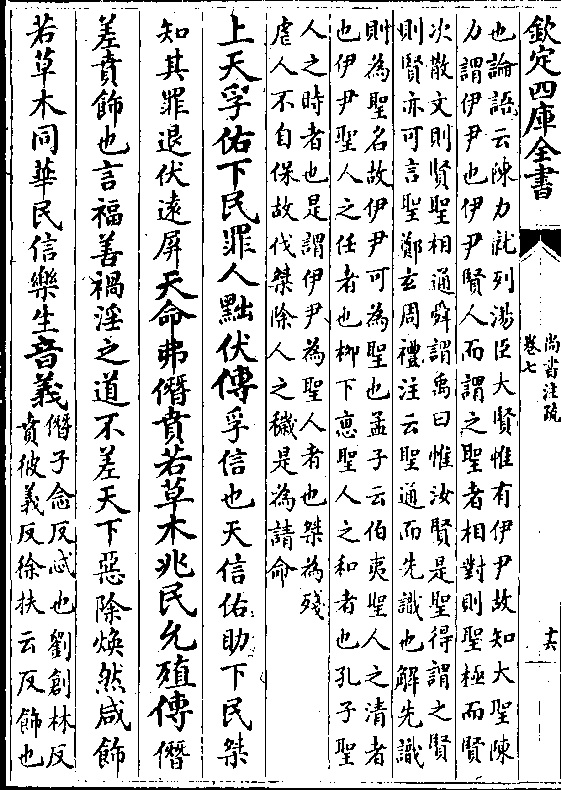 欽定四庫全書
尚書注疏
卷七
十六
也論語云陳力就列湯臣大賢惟有伊尹故知大聖陳
力謂伊尹也伊尹賢人而謂之聖者相對則聖極而賢
次散文則賢聖相通舜謂禹曰惟汝賢是聖得謂之賢
則賢亦可言聖鄭玄周禮注云聖通而先識也解先識
則為聖名故伊尹可為聖也孟子云伯夷聖人之清者
也伊尹聖人之任者也柳下惠聖人之和者也孔子聖
人之時者也是謂伊尹為聖人者也桀為殘
虐人不自保故伐桀除人之穢是為請命
上天孚佑下民罪人黜伏傳孚信也天信佑助下民桀
知其罪退伏遠屏天命弗僭賁若草木兆民允殖傳僭
差賁飾也言福善禍淫之道不差天下惡除煥然咸飾
若草木同華民信樂生音義
僭子念反忒也劉創林反
賁彼義反徐扶云反飾也